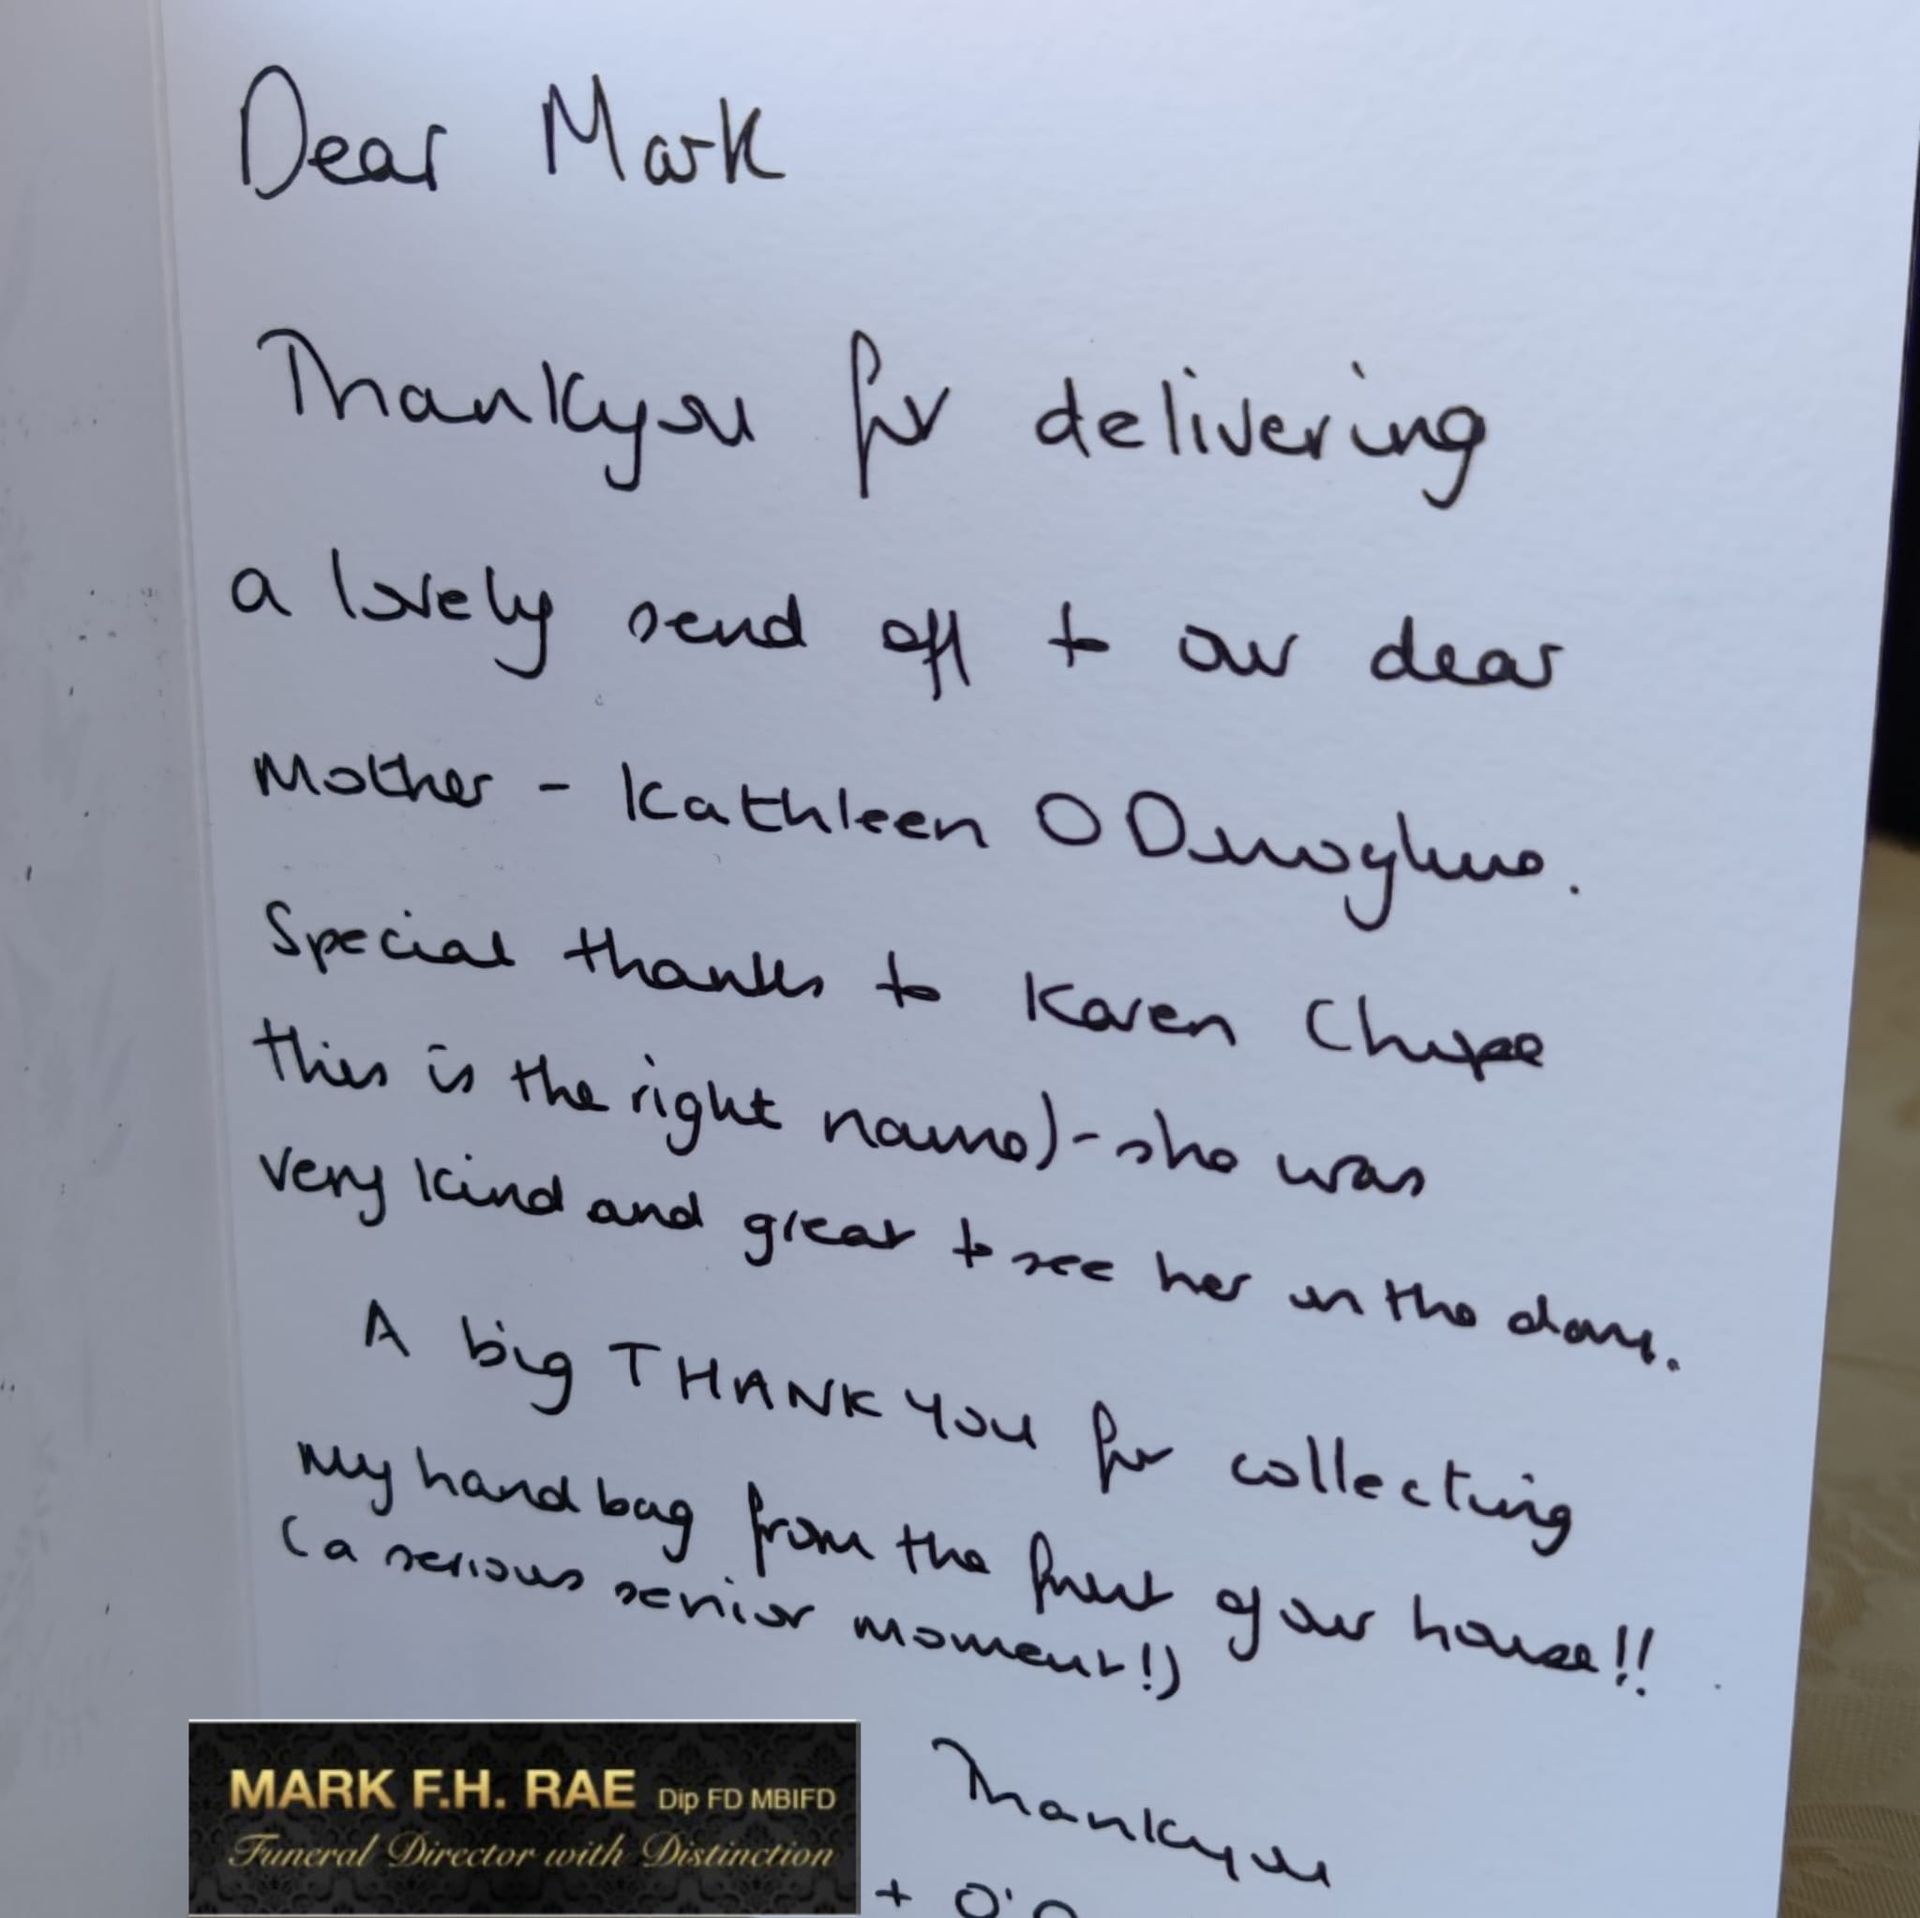 Dear Mark
Thankyou for delivering
a lovely send off to our dear
Mother - Kathleen O Donoghue.
Special thanks to Karen
this is the right name) - she was
very kind and great to see her on the day.
A big THANK YOU for collecting
my handbag from the front of our house!!
(a serious senior moment!)
Thankyou
+ O'
MARK F.H. RAE Dip FD MBIFD
Funeral Director with Distinction